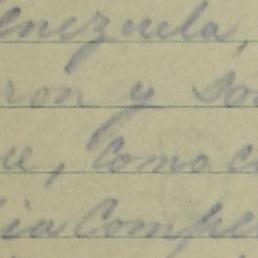 enezuela,
ron y so
ue, como c
ia compe